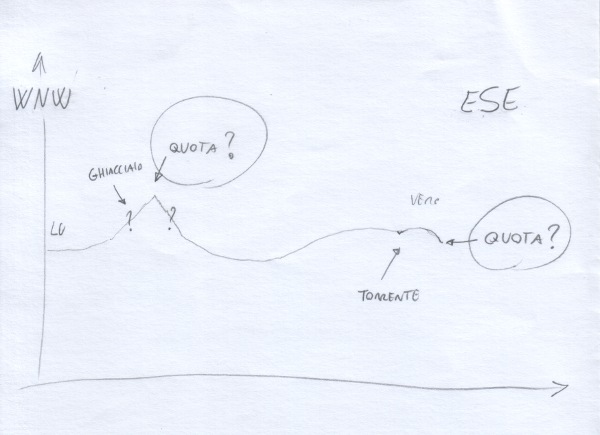 WNW
ESE
QUOTA?
GHIACCIAIO
? ?
LU
QUOTA?
TORRENTE